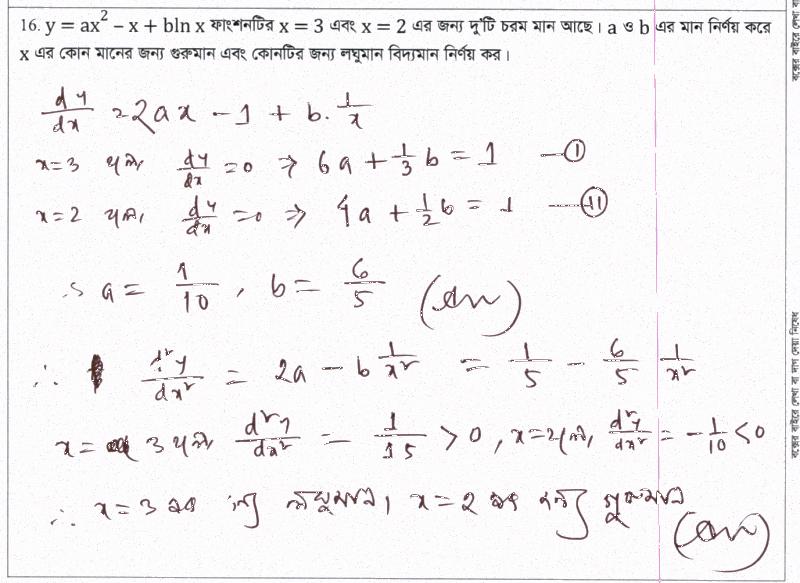 16. y = ax² – x + bln x ফাংশনটির x = 3 এবং x = 2 এর জন্য দু'টি চরম মান আছে। a ও b এর মান নির্ণয় করে
x এর কোন মানের জন্য গুরুমান এবং কোনটির জন্য লঘুমান বিদ্যমান নির্ণয় কর।
dy/dx = 2ax – 1 + b. 1/x
x=3 হলে, dy/dx = 0 ⇒ 6a + 1/3 b = 1 —(I)
x=2 হলে, dy/dx = 0 ⇒ 4a + 1/2 b = 1 —(II)
∴ a = 1/10, b = 6/5 (Ans)
∴ d²y/dx² = 2a – b 1/x² = 1/5 – 6/5 1/x²
x = 3 হলে, d²y/dx² = 1/15 > 0, x=2 হলে, d²y/dx² = – 1/10 < 0
∴ x = 3 এর জন্য লঘুমান। x = 2 এর জন্য গুরুমান
(Ans)